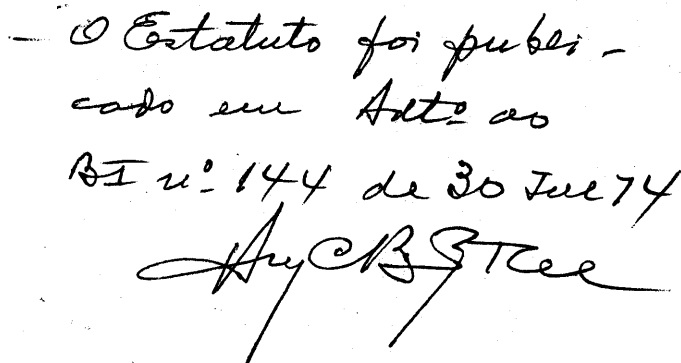 - O Estatuto foi publi-
cado em Adtº ao
BI nº 144 de 30 Jul 74